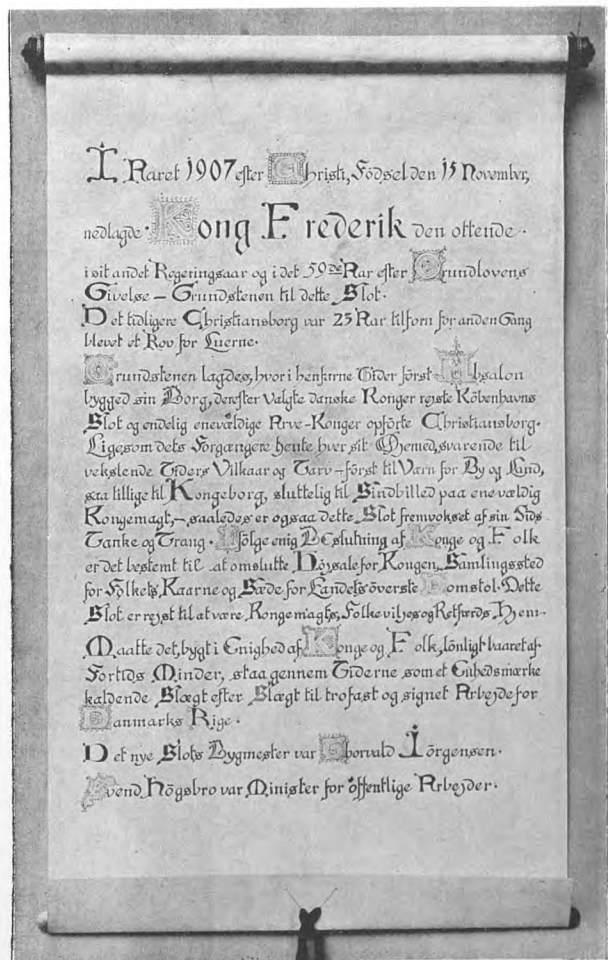 I Aaret 1907 efter Christi Födsel den 15 November,
nedlagde Kong Frederik den ottende
i sit andet Regeringsaar og i det 59de Aar efter Grundlovens
Givelse – Grundstenen til dette Slot.
Det tidligere Christiansborg var 23 Aar tilforn for anden Gang
blevet et Rov for Luerne.
Grundstenen lagdes, hvor i henfarne Tider först Absalon
bygged sin Borg, derefter valgte danske Konger rejste Köbenhavns
Slot og endelig enevældige Arve-Konger opförte Christiansborg.
Ligesom dets Forgængere hente hver sit Öjemed, svarende til
vekslende Tiders Vilkaar og Tarv – först til Værn for By og Land,
saa tillige til Kongeborg, sluttelig til Sindbilled paa enevældig
Kongemagt, – saaledes er ogsaa dette Slot fremvokset af sin Tids
Tanke og Trang. Ifölge enig Beslutning af Konge og Folk
er det bestemt til at omslutte Höjsale for Kongen, Samlingssted
for Folkets Kaarne og Sæde for Landets överste Domstol. Dette
Slot er rejst til at være Kongemagts, Folkeviljes og Retfærds Hjem.
Maatte det, bygt i Enighed af Konge og Folk, lönligt baaret af
Fortids Minder, staa gennem Tiderne som et Enhedsmærke
kaldende Slægt efter Slægt til trofast og signet Arbejde for
Danmarks Rige.
Det nye Slots Bygmester var Thorvald Jörgensen.
Svend Högsbro var Minister for offentlige Arbejder.